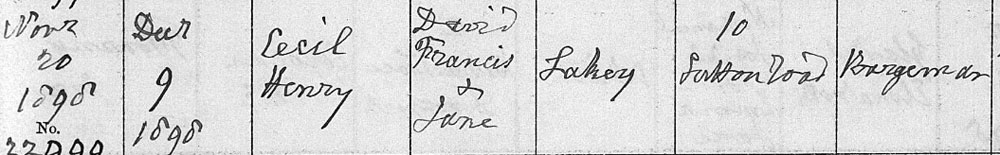 Novr
20
1898
No.
Decr
9
1898
Cecil
Henry
David
Francis
&
Jane
Lakey
10
Sutton road
Bargeman